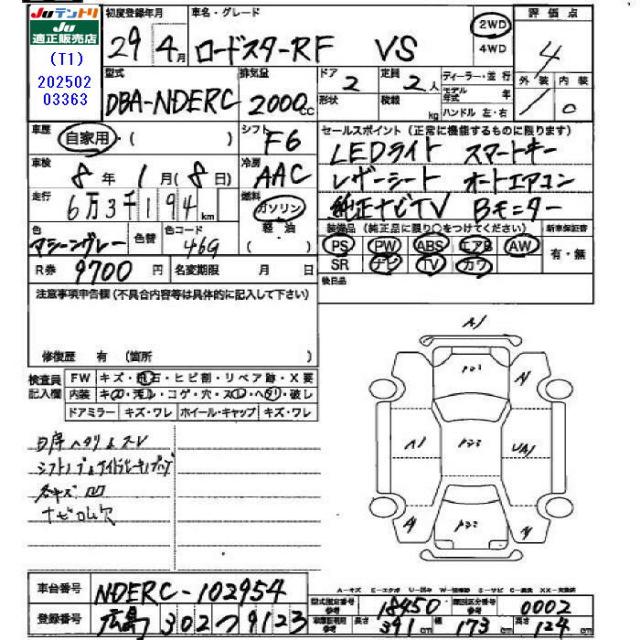 Juテントリ
Ju
適正販売店
(T1)
202502
03363
初度登録年月 29年 4月
車名・グレード ロードスターRF VS
2WD
4WD
評価点 4
外装 内装
1 0
型式 DBA-NDERC
排気量 2000cc
ドア 2
形状
定員 2人
積載 kg
ディーラー・並行
モデル年式 年
ハンドル 左・右
車歴 自家用・( )
シフト F6
車検 8年 1月(8日)
冷房 AAC
走行 6万3千194km
燃料 ガソリン
軽・油
色 マシーングレー
色替
色コード 46G
R券 9700円
名変期限 月 日
セールスポイント(正常に機能するものに限ります)
LEDライト スマートキー
レザーシート オートエアコン
純正ナビTV Bモニター
装備品(純正品に限り○をつけてください) 新車保証書
PS PW ABS エアB AW 有・無
SR ナビ TV カワ
後日品
注意事項申告欄(不具合内容等は具体的に記入して下さい)
修復歴 有 (箇所 )
検査員記入欄
FW キズ・飛石・ヒビ割・リペア跡・X要
内装 キズ・汚レ・コゲ・穴・スレ・ヘタリ・破レ
ドアミラー キズ・ワレ ホイール・キャップ キズ・ワレ
ナビロム欠
A1
A1
A1
UA1
車台番号 NDERC-102954
登録番号 広島 302 つ 9123
型式指定番号 参考 18450
類別区分番号 参考 0002
車庫証明用 参考 長さ 391cm 幅 173cm 高さ 124cm